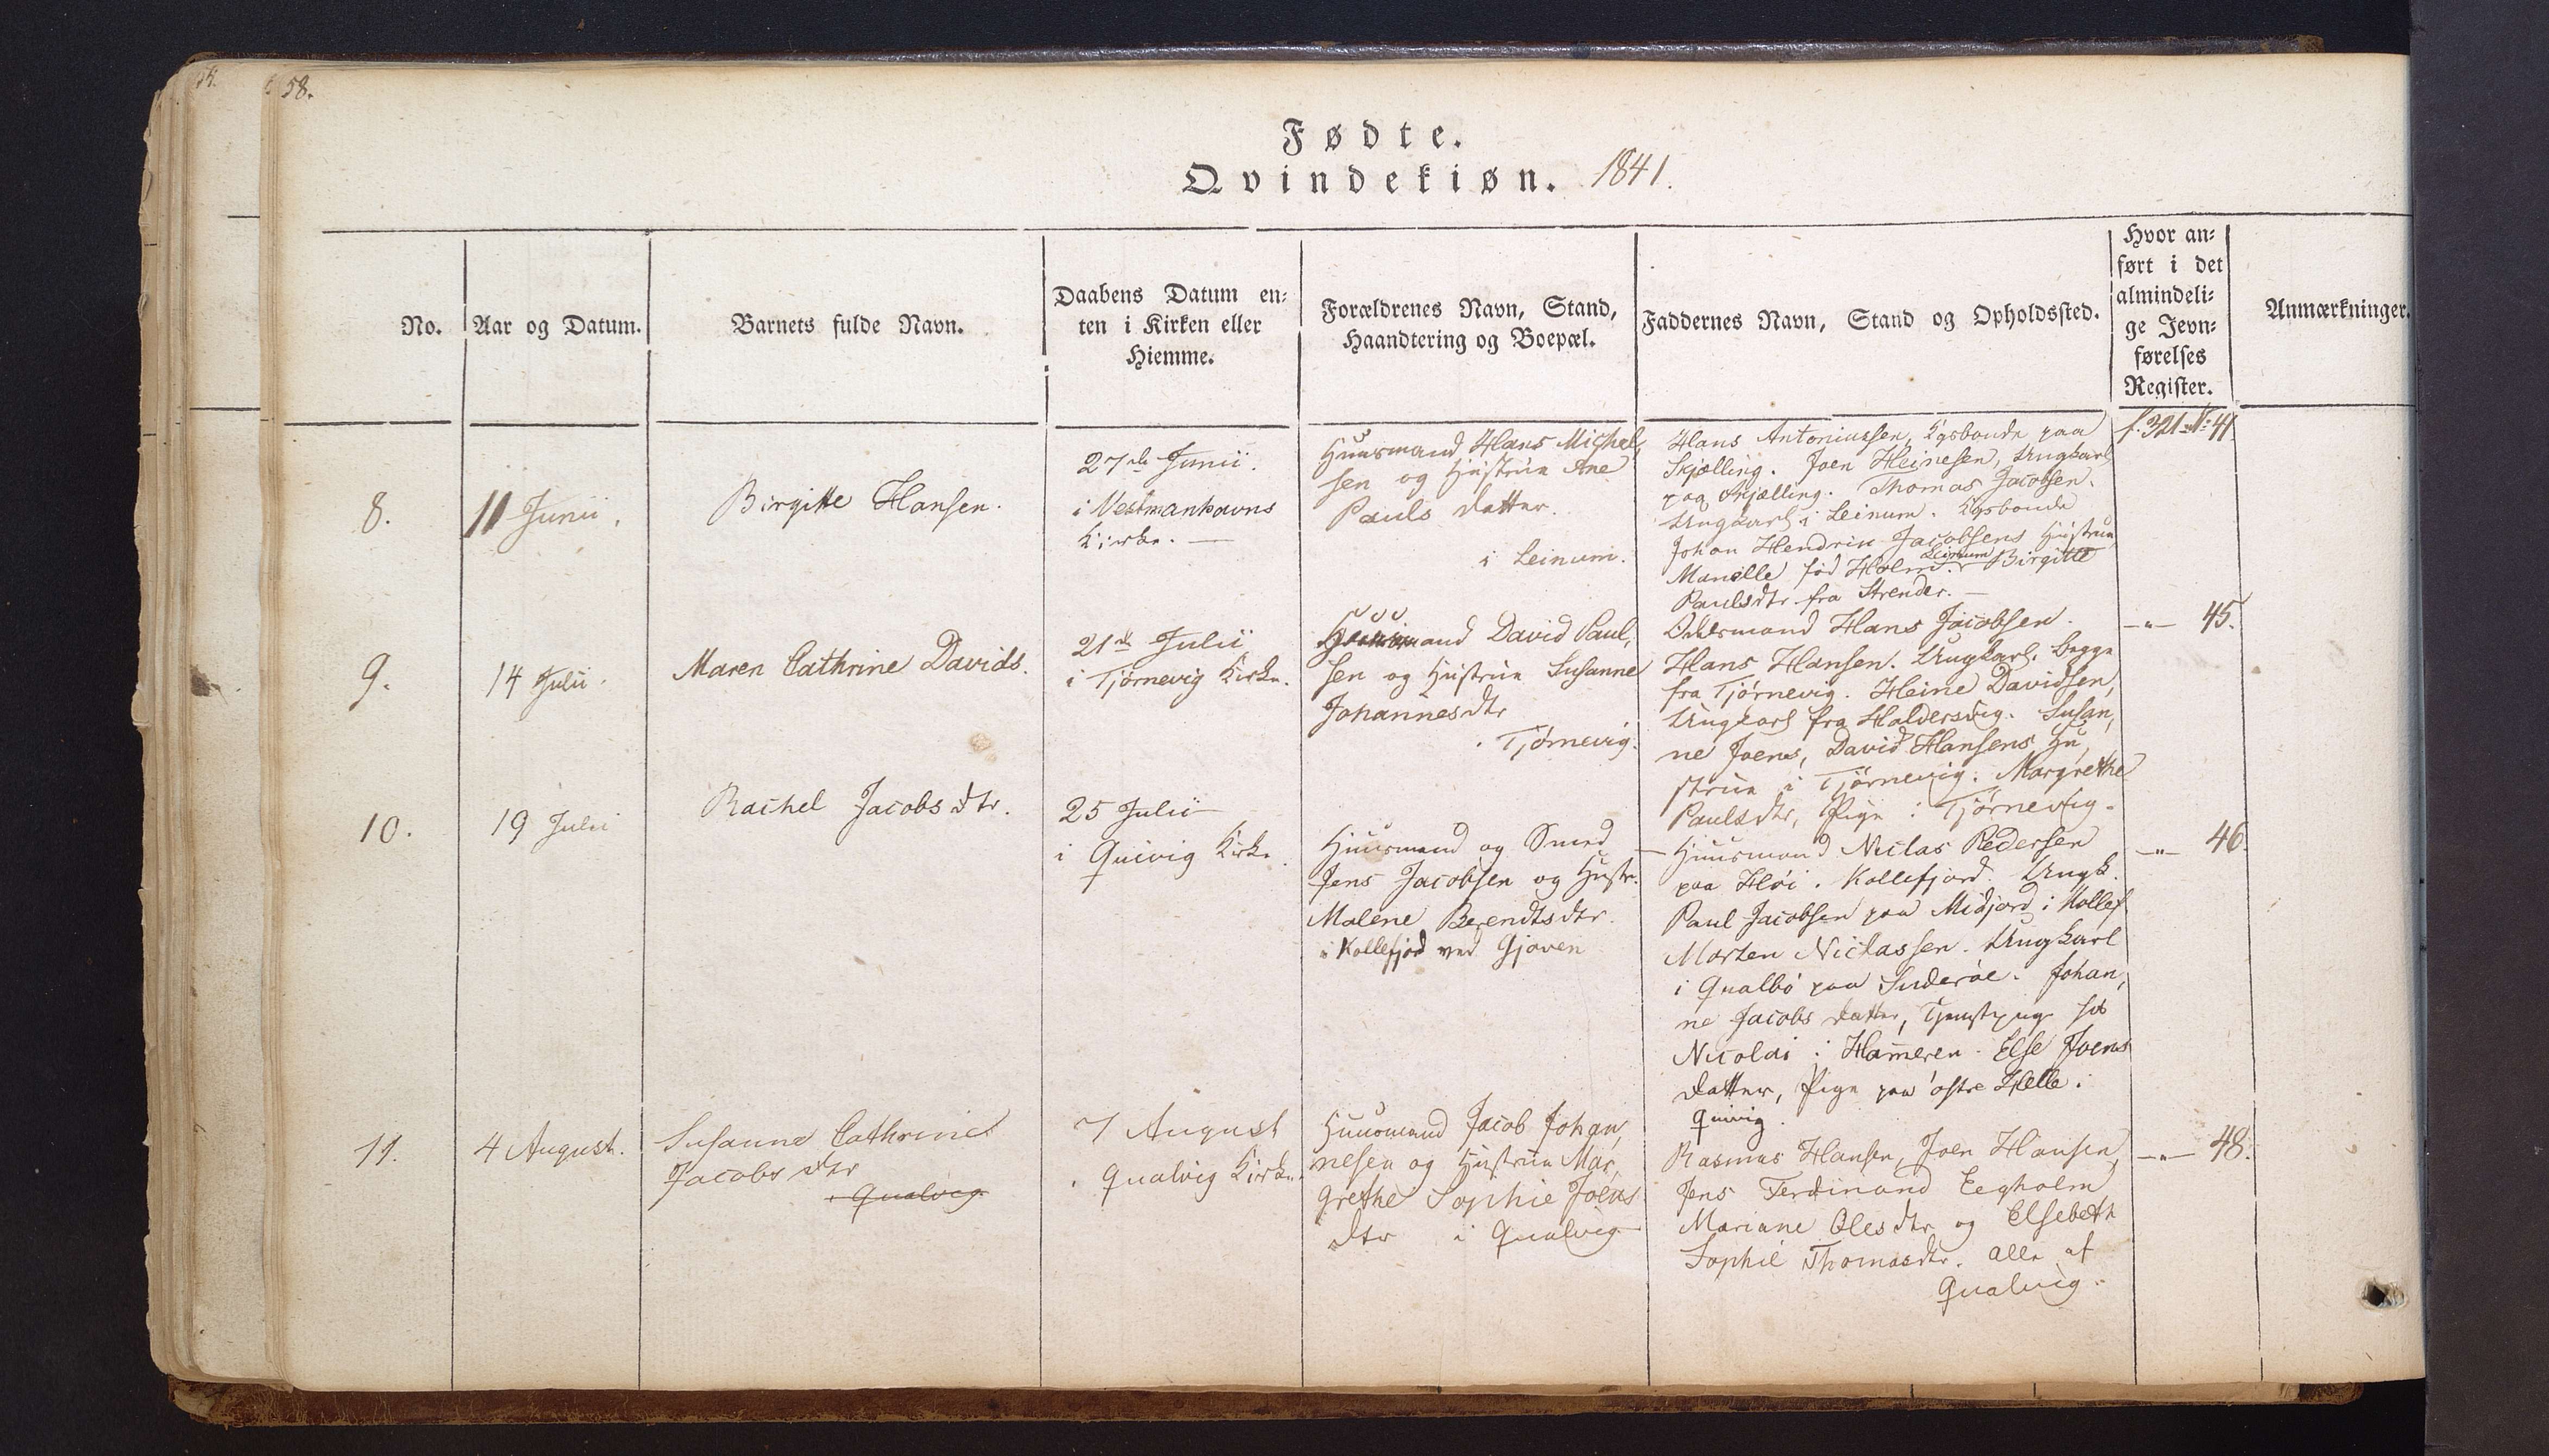 58.
Fødte.
Qvindekiøn. 1841.
No.
Aar og Datum.
Barnets fulde Navn.
Daabens Datum en-
ten i Kirken eller
Hiemme.
Forældrenes Navn, Stand,
Haandtering og Boepæl.
Faddernes Navn, Stand og Opholdssted.
Hvor an-
ført i det
almindeli-
ge Jevn-
førelses
Register.
Anmærkninger.
8.
11 Junii.
Birgitte Hansen.
27de Junii.
i Vestmanhavns
Kirke. —
Huusmand Hans Michel,
sen og Hustrue Ane
Pauls datter.
i Leinum.
Hans Antoniussen, Kgsbonde paa
Skjælling. Joen Heinesen, Ungkarl
paa Skjælling. Thomas Jacobsen.
Ungkarl i Leinum. Kgsbonde
Johan Hendrik Jacobsens Hustrue
Leinum
Manille fød Holm. Birgitte
Paulsdtr fra Strender. —
f. 321 N: 41
9.
14 Julii.
Maren Cathrine Davids.
21de Julii
i Tjørnevig Kirke.
Huusmand David Paul,
sen og Hustrue Susanne
Johannesdtr
i Tjørnevig.
Oldermand Hans Jacobsen.
Hans Hansen. Ungkarl. begge
fra Tjørnevig. Heine Davidsen,
Ungkarl fra Haldersvig. Susan,
ne Joens, David Hansens Hu,
strue i Tjørnevig. Margrethe
Paulsdtr, Pige i Tjørnevig.
—"— 45.
10.
19 Julii
Rachel Jacobsdtr.
25 Julii
i Quivig Kirke.
Huusmand og Smed
Jens Jacobsen og Hustr.
Malene Berendtsdtr.
i Kollefjord ved Gjoven
Huusmand Niclas Pedersen
paa Høi i Kollefjord. Ungk.
Paul Jacobsen paa Midjord i Kollef
Morten Niclassen. Ungkarl
i Qualbø paa Suderøe. Johan,
ne Jacobs datter, Tjenstpige hos
Nicolai i Hameren. Else Joens
datter, Pige paa østre Helle i
Quivig.
—"— 46.
11.
4 August.
Susanne Cathrine
Jacobsdtr
i Qualvig
7 August
i Qualvig Kirke.
Huusmand Jacob Johan,
nesen og Hustrue Mar,
grethe Sophie Joens
dtr i Qualvig
Rasmus Hansen, Joen Hansen,
Jens Ferdinand Eegholm
Mariane Olesdtr og Elsebeth
Sophie Thomasdtr. alle af
Qualvig.
—"— 48.